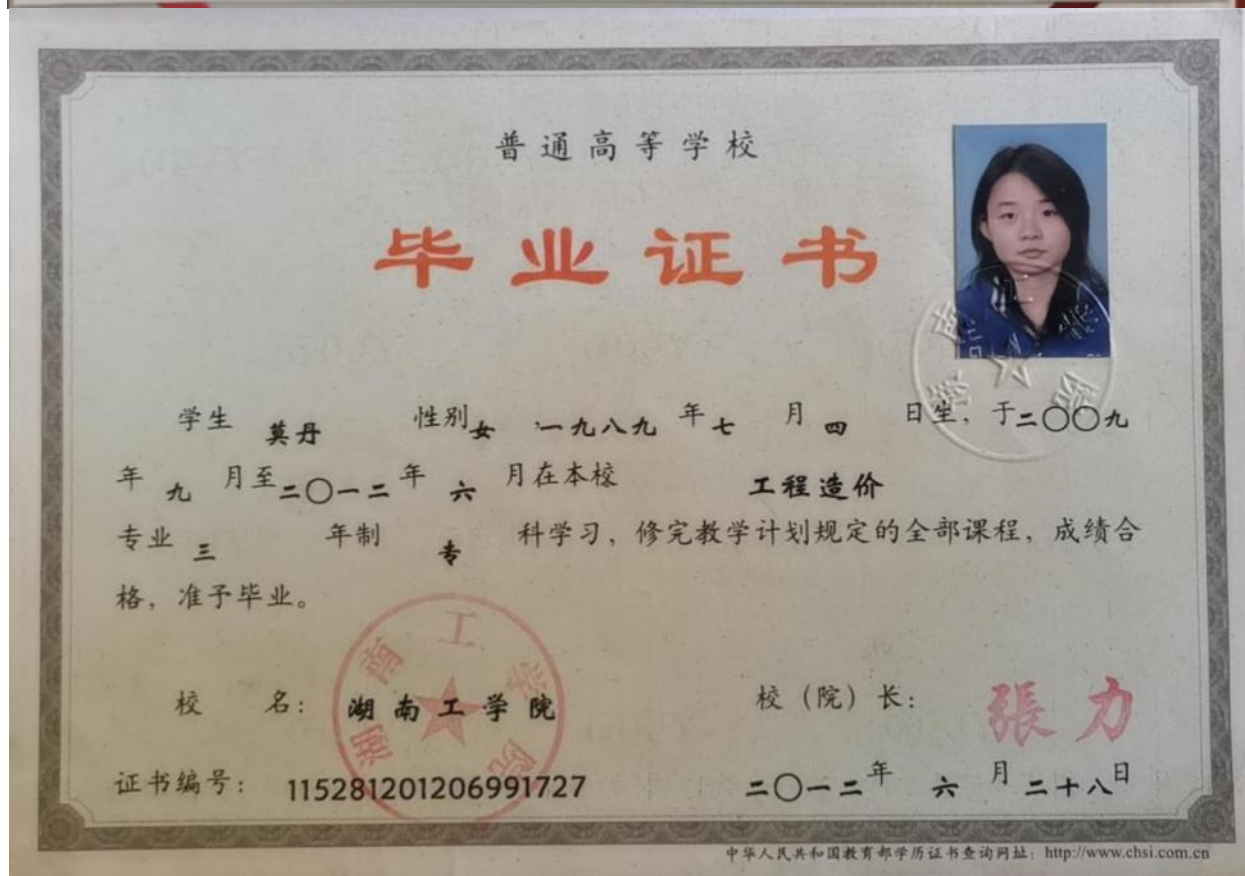 普通高等学校
毕业证书
学生 莫丹 性别女,一九八九年七月四日生,于二〇〇九
年九月至二〇一二年六月在本校 工程造价
专业 三 年制 专 科学习,修完教学计划规定的全部课程,成绩合
格,准予毕业。
湖南工学院
校 名: 湖南工学院 校(院)长: 張力
证书编号: 115281201206991727 二〇一二年六月二十八日
中华人民共和国教育部学历证书查询网址:http://www.chsi.com.cn